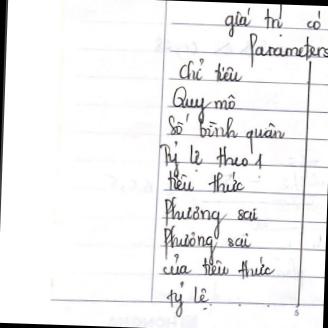 giá trị có
Parameters
Chỉ tiêu
Quy mô
Số bình quân
Tỷ lệ theo 1
tiêu thức
Phương sai
Phương sai
của tiêu thức
tỷ lệ